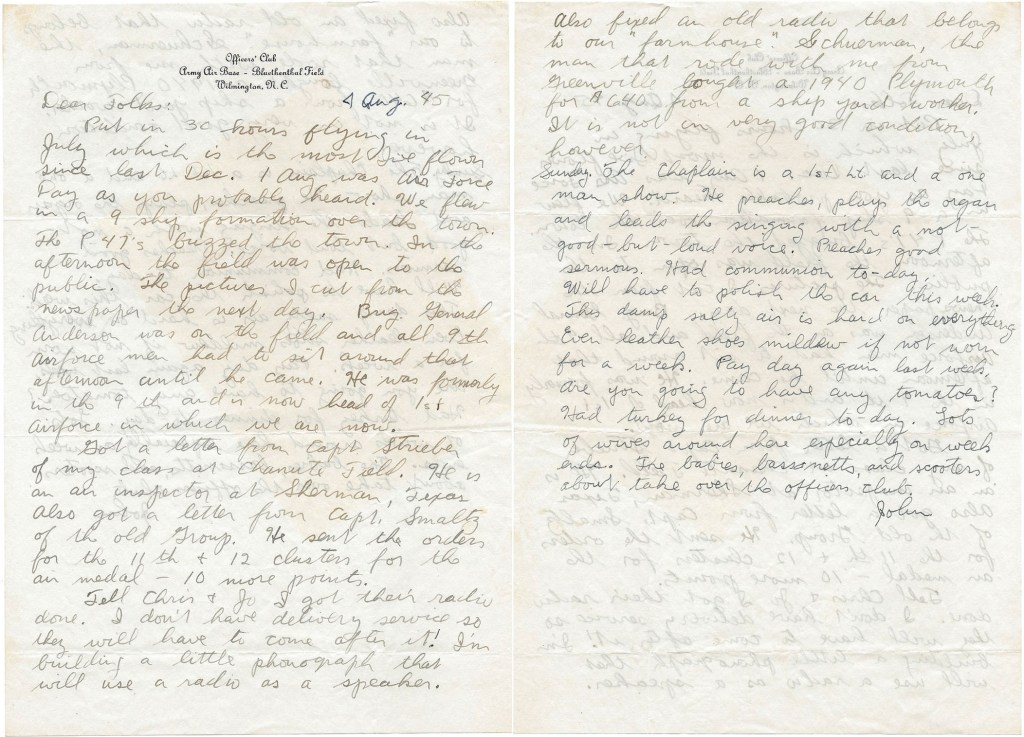 Officers' Club
Army Air Base - Bluethenthal Field
Wilmington, N.C.
Dear Folks: 4 Aug. 45
Put in 30 hours flying in
July which is the most I've flown
since last Dec. 1 Aug was Air Force
Day as you probably heard. We flew
in a 9 ship formation over the town.
The P 47's buzzed the town. In the
afternoon the field was open to the
public. The pictures I cut from the
newspaper the next day. Brig. General
Anderson was on the field and all 9th
airforce men had to sit around that
afternoon until he came. He was formerly
in the 9th and is now head of 1st
airforce in which we are now.
Got a letter from Capt Strieber
of my class at Chanute Field. He is
an air inspector at Sherman, Texas
Also got a letter from Capt. Smaltz
of the old Group. He sent the orders
for the 11th + 12 clusters for the
air medal - 10 more points.
Tell Chris + Jo I got their radio
done. I don't have delivery service so
they will have to come after it! I'm
building a little phonograph that
will use a radio as a speaker.
Also fixed an old radio that belongs
to our "farmhouse". Schuerman, the
man that rode with me from
Greenville bought a 1940 Plymouth
for $640 from a ship yard worker.
It is not in very good condition
however
Sunday. The Chaplain is a 1st Lt and a one
man show. He preaches, plays the organ
and leads the singing with a not-
good-but-loud voice. Preaches good
sermons. Had communion to-day.
Will have to polish the car this week.
This damp salty air is hard on everything
Even leather shoes mildew if not worn
for a week. Pay day again last week.
Are you going to have any tomatoes?
Had turkey for dinner to-day. Lots
of wives around here especially on week
ends. The babies, bassonetts, and scooters
about take over the officers club.
John